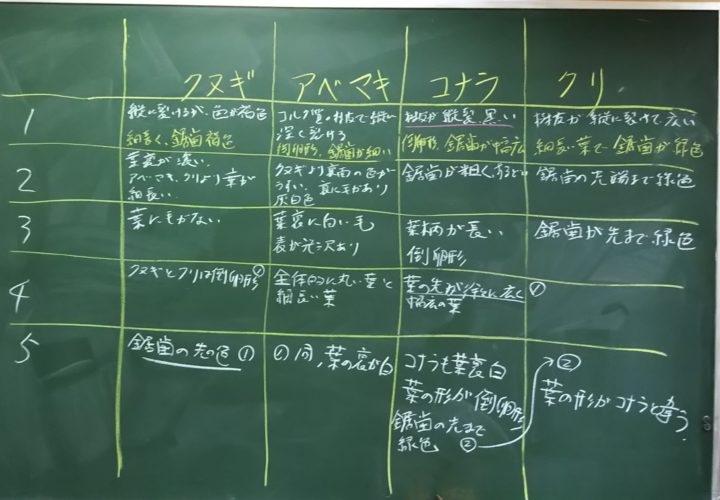 クヌギ
アベマキ
コナラ
クリ
1
縦に裂けるが、色が褐色
細長く、鋸歯褐色
コルク質の樹皮で縦に
深く裂ける
倒卵形、鋸歯が細い
樹皮が縦裂、黒い
倒卵形、鋸歯が幅広
樹皮が縦に裂けて広い
細長い葉で鋸歯が緑色
2
葉裏が濃い、
アベマキ、クリより葉が
細長い
クヌギより裏面の色が
うすい、裏に毛があり
灰白色
鋸歯が粗く
鋸歯の先端まで緑色
3
葉に毛がない
葉裏に白い毛
表が光沢あり
葉柄が長い
倒卵形
鋸歯が先まで緑色
4
クヌギとクリは倒卵形
全体的に丸い葉と
細長い葉
葉の先が徐々に広く
幅広の葉
①
5
鋸歯の先の色 ①
同、葉の裏が白
コナラも葉裏白
葉の形が倒卵形
鋸歯の先まで
緑色 ②
②
葉の形がコナラと違う?